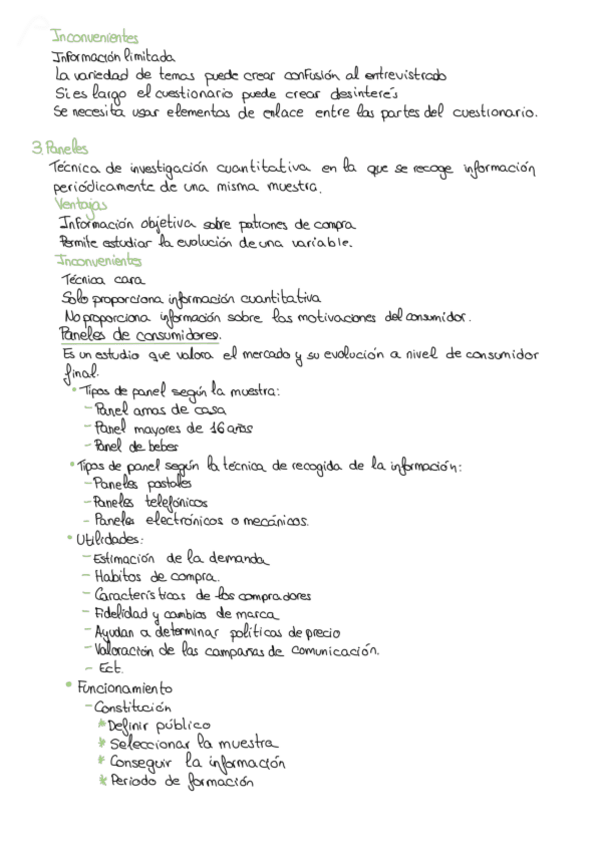 Inconvenientes
Información limitada
La variedad de temas puede crear confusión al entrevistrado
Si es largo el cuestionario puede crear desinterés
Se necesita usar elementos de enlace entre las partes del cuestionario.
3. Paneles
Técnica de investigación cuantitativa en la que se recoge información
periódicamente de una misma muestra.
Ventajas
Información objetiva sobre patrones de compra
Permite estudiar la evolución de una variable.
Inconvenientes
Técnica cara
Solo proporciona información cuantitativa
No proporciona información sobre las motivaciones del consumidor.
Paneles de consumidores.
Es un estudio que valora el mercado y su evolución a nivel de consumidor
final.
• Tipos de panel según la muestra:
- Panel amas de casa
- Panel mayores de 16 años
- Panel de bebes
• Tipos de panel según la técnica de recogida de la información:
- Paneles postales
- Paneles telefónicos
- Paneles electrónicos o mecánicos.
• Utilidades:
- Estimación de la demanda
- Habitos de compra.
- Características de los compradores
- Fidelidad y cambios de marca
- Ayudan a determinar políticas de precio
- Valoración de las campañas de comunicación.
- Ect.
• Funcionamiento
- Constitución
* Definir público
* Seleccionar la muestra
* Conseguir la información
* Periodo de formación